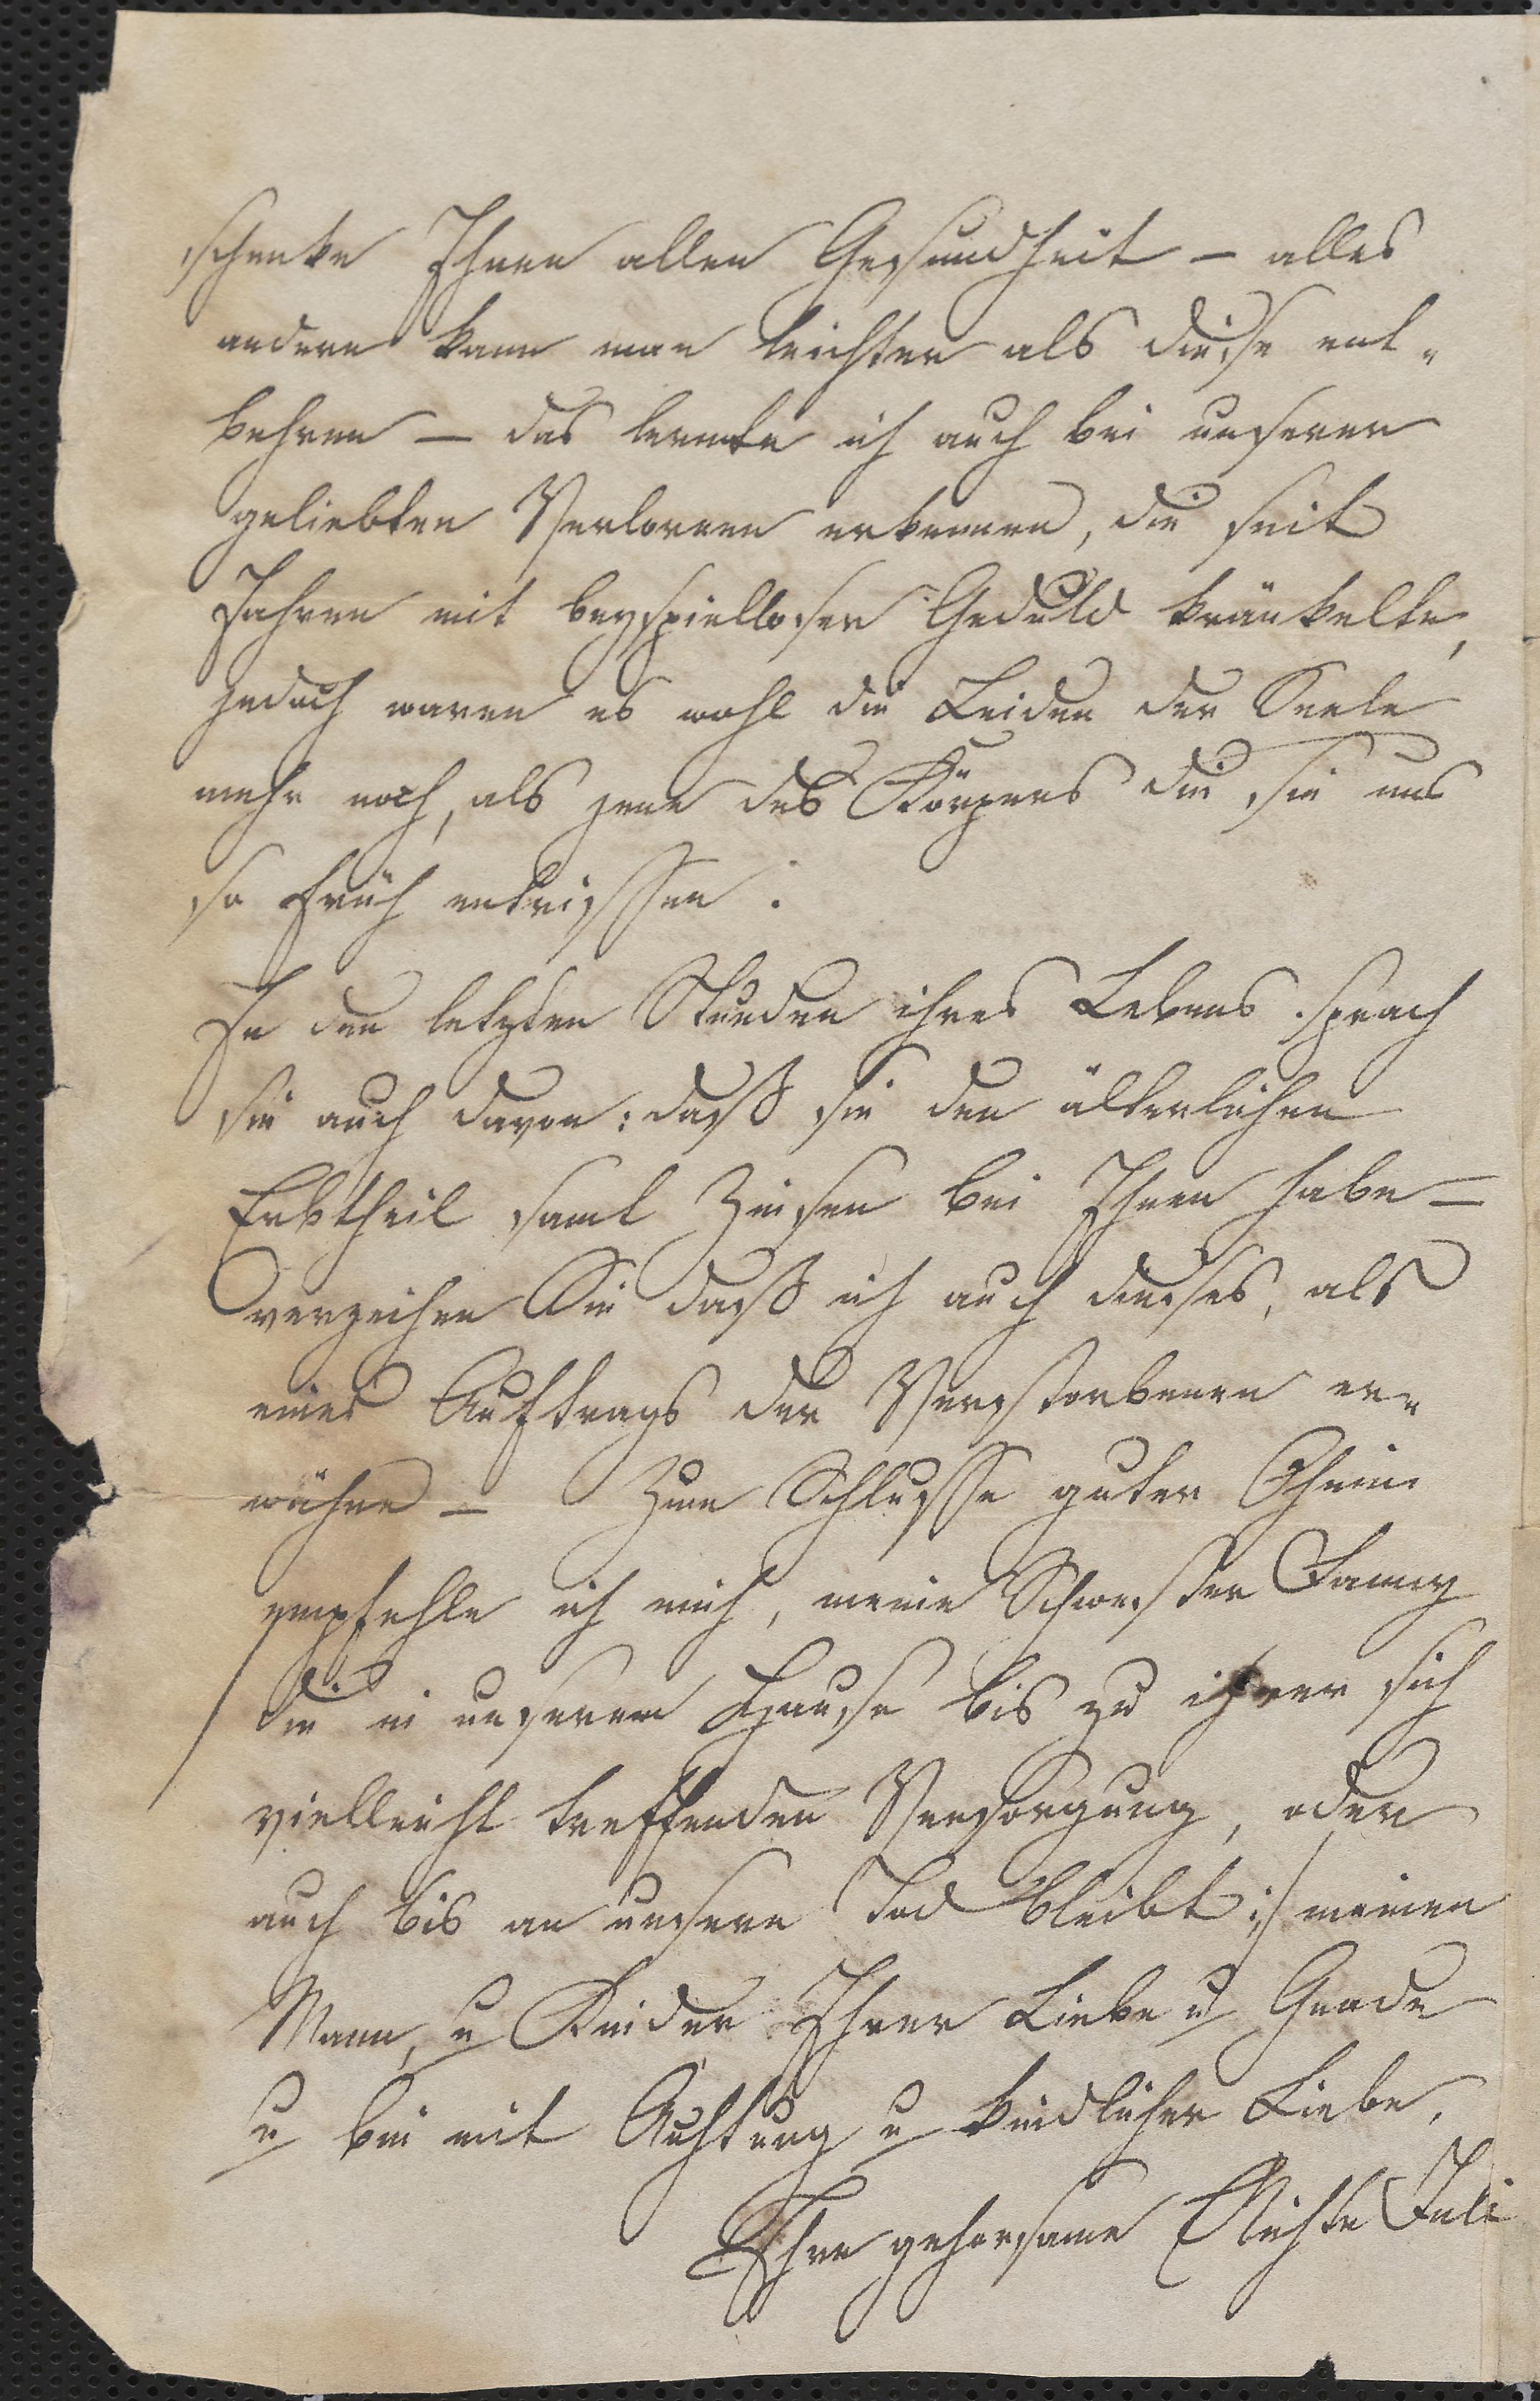 schenke Ihnen allen Gesundheit – alles
andere kann man leichter als diese ent„
behren – das lernte ich auch bei unserer
geliebten Verlornen erkennen, die seit
Jahren mit beyspielloser Geduld kränkelte,
jedoch waren es wohl die Leiden der Seele
mehr noch, als jene des Körpers die sie uns
so früh entrissen.
In den letzten Stunden ihres Lebens sprach
sie auch davon: daß sie den älterlichen
Erbtheil samt Zinsen bei Ihnen habe –
verzeihen Sie daß ich auch dieses, als
eines Auftrags der Verstorbenen er„
wähne – Zum Schlusse guter Oheim
empfehle ich mich, meine Schwester Fanny
/ die in unserem Hause bis zu ihrer sich
vielleicht treffenden Versorgung, oder
auch bis an unsern Tod bleibt :/ meinen
Mann, u Kinder Ihrer Liebe u Gnade
u bin mit Achtung u kindlicher Liebe,
Ihre gehorsame Nichte Juli